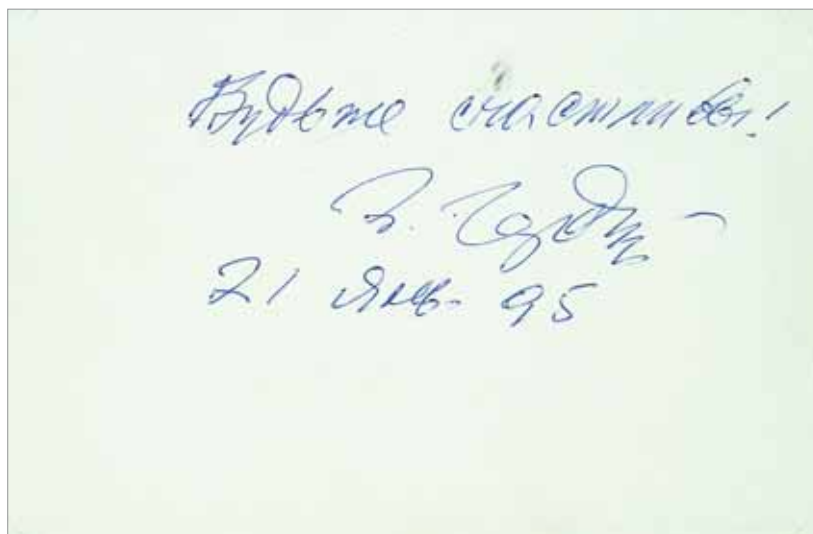 Будьте счастливы!
21 янв. 95